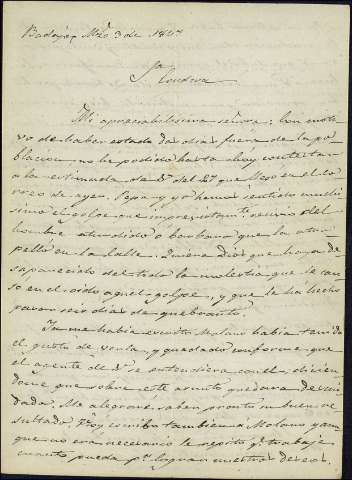 Badajoz Mzo 3 de 18
Sra
Mi apreciabilisima señora: Con moti-
vo de haber estado dos dias fuera de la po-
blacion, no he podido hasta hoy contestar
a la estimada de V. del 27 que llegó en el cor-
reo de ayer. Pepa y yo hemos sentido muchi-
simo el golpe que recibio del
hombre aturdido o barbaro que la atro-
pelló en la calle. Quiera Dios que haya de-
saparecido del todo la molestia que le cau-
so en el oido aquel golpe, y que le ha hecho
pasar seis dias de quebranto.
Ya me habia escrito Molano habia tenido
el gusto de verla, y quedado conforme que
el agente de V. se entendiera con el; dicien-
dome que sobre este asunto quedara descui-
dada. Me alegraré saber pronto un buen re-
sultado. Hoy escribo tambien a Molano y aun-
que no será necesario le repito q.e trabaje
cuanto pueda p.a lograr nuestros deseos.